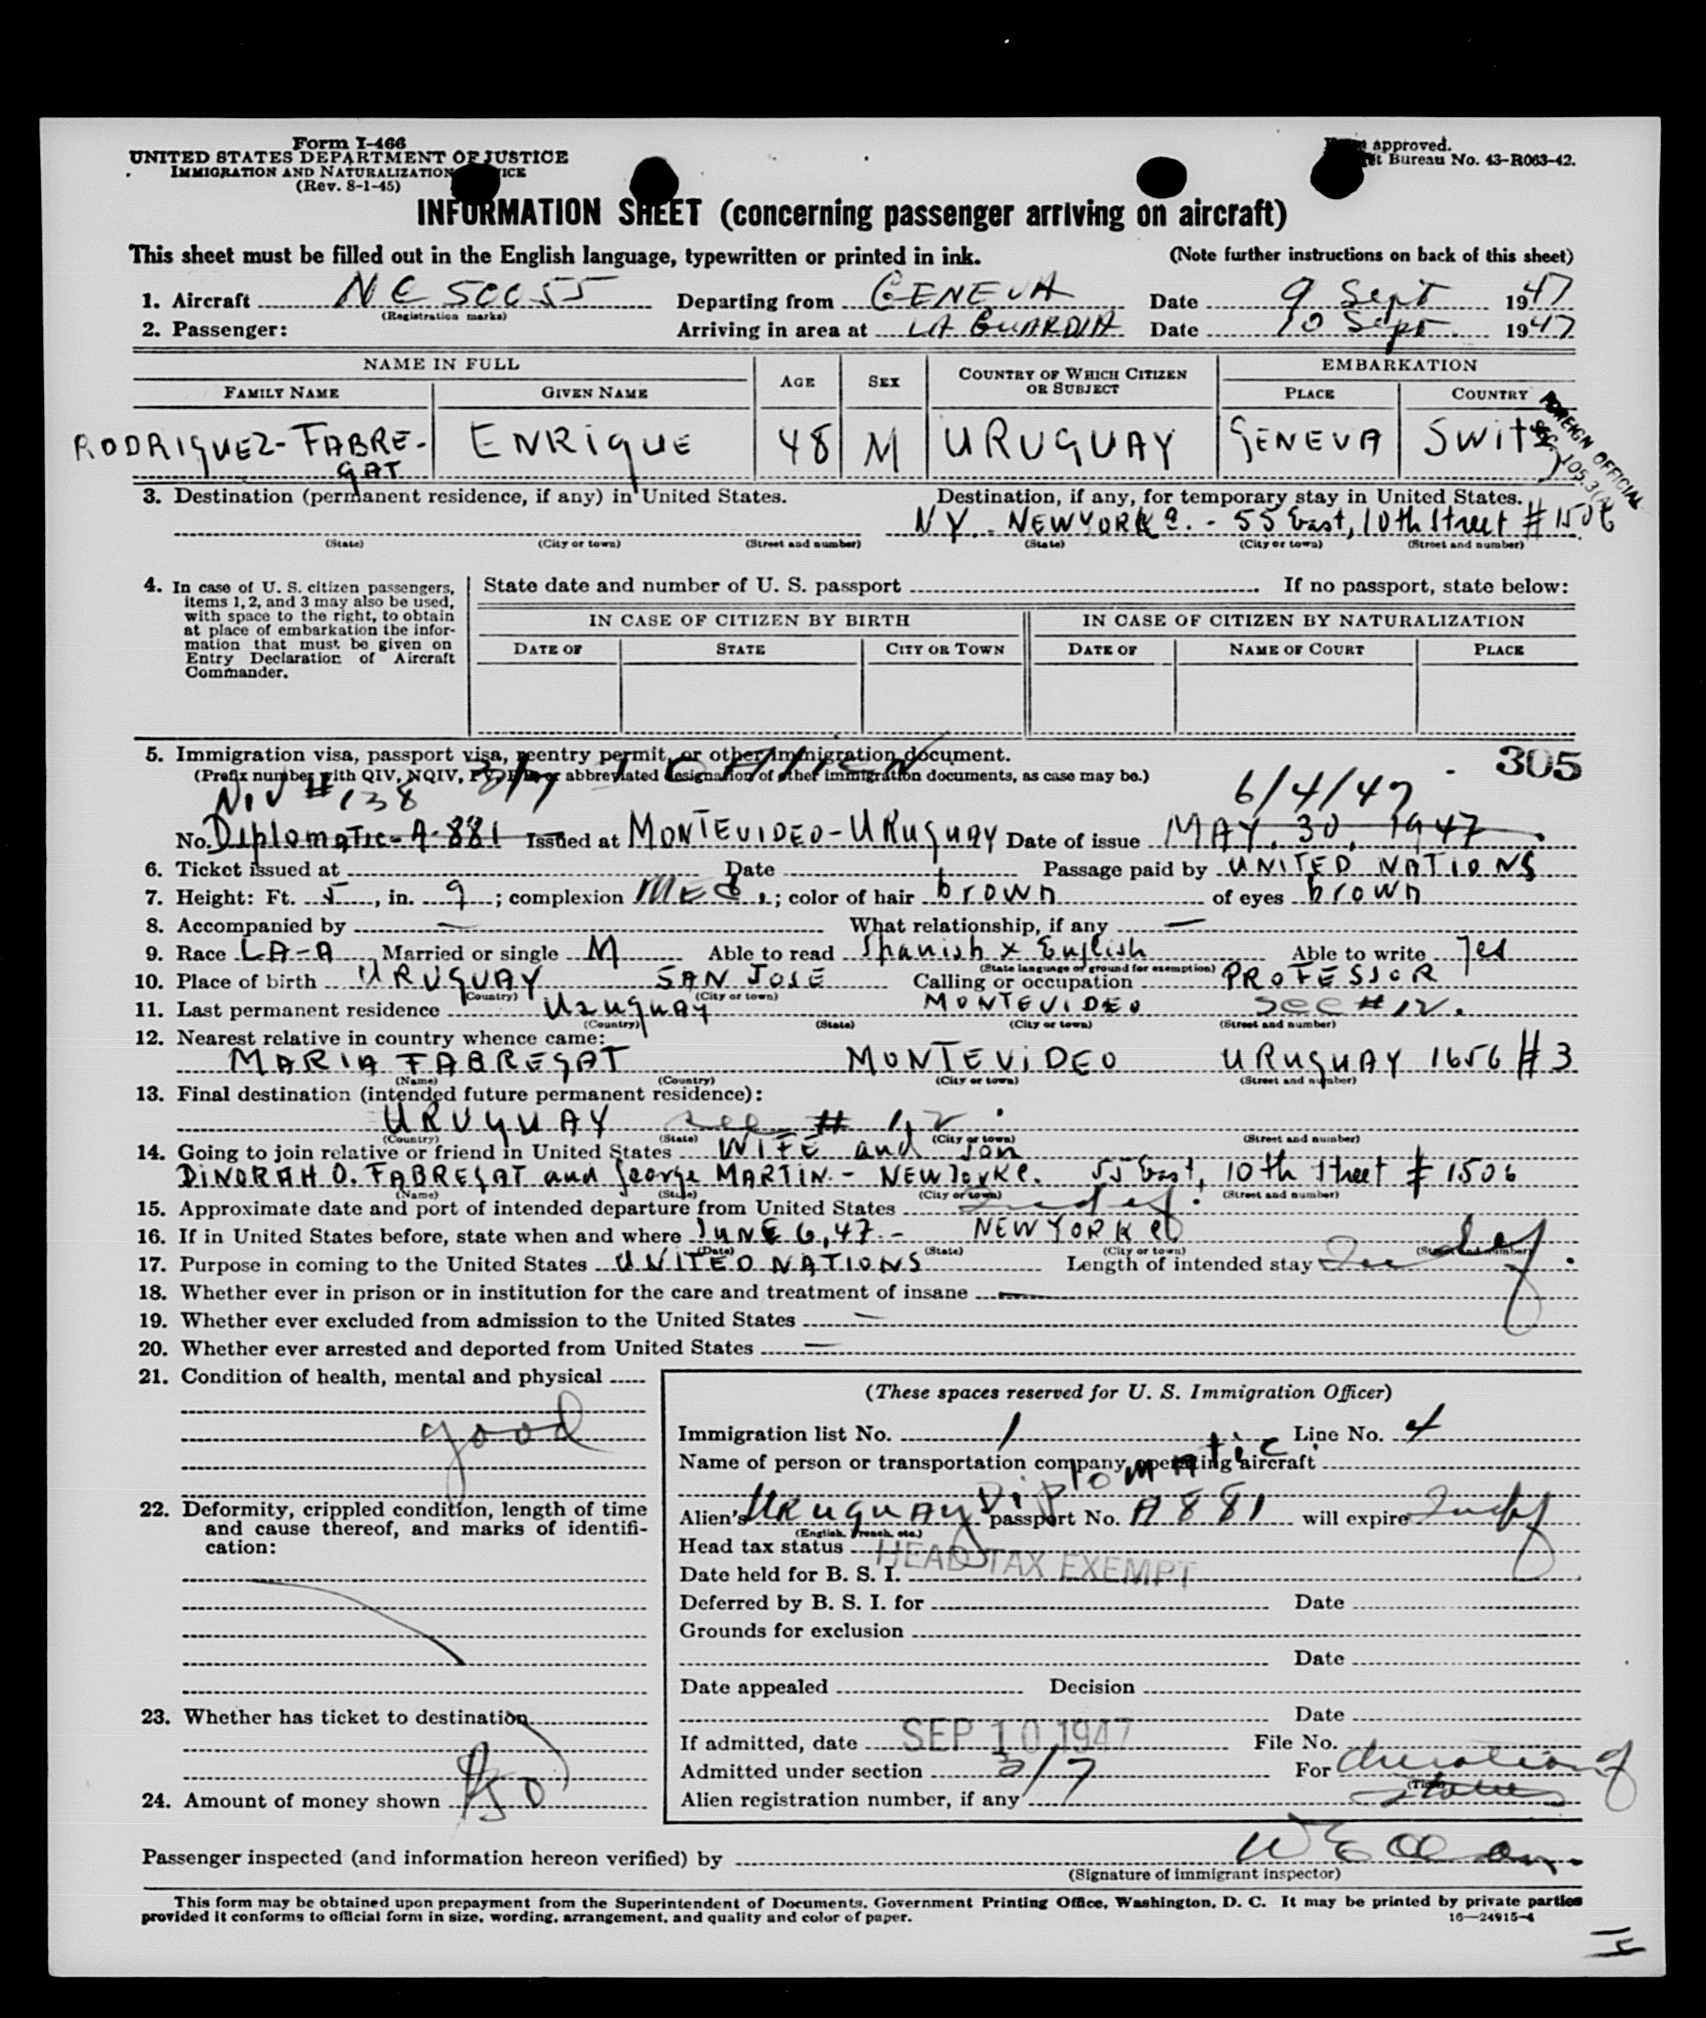 Form I-466
UNITED STATES DEPARTMENT OF JUSTICE
IMMIGRATION AND NATURALIZATION
(Rev. 8-1-45)
approved.
Bureau No. 43-R063-42.
INFORMATION SHEET (concerning passenger arriving on aircraft)
This sheet must be filled out in the English language, typewritten or printed in ink. (Note further instructions on back of this sheet)
1. Aircraft NC 50055 Departing from GENEVA Date 9 Sept 1947
(Registration marks)
2. Passenger: Arriving in area at LA GUARDIA Date 10 Sept 1947
NAME IN FULL AGE SEX COUNTRY OF WHICH CITIZEN OR SUBJECT EMBARKATION
FAMILY NAME GIVEN NAME PLACE COUNTRY
RODRIGUEZ-FABRE- ENRIQUE 48 M URUGUAY GENEVA SWITZ
GAT
FOREIGN OFFICIAL
SEC. 105.3(A)
3. Destination (permanent residence, if any) in United States. Destination, if any, for temporary stay in United States.
NY.- NEWYORK C.- 55 East, 10th Street #1506
(State) (City or town) (Street and number) (State) (City or town) (Street and number)
4. In case of U. S. citizen passengers, items 1, 2, and 3 may also be used, with space to the right, to obtain at place of embarkation the information that must be given on Entry Declaration of Aircraft Commander.
State date and number of U. S. passport If no passport, state below:
IN CASE OF CITIZEN BY BIRTH IN CASE OF CITIZEN BY NATURALIZATION
DATE OF STATE CITY OR TOWN DATE OF NAME OF COURT PLACE
5. Immigration visa, passport visa, reentry permit, or other immigration document. 305
(Prefix number with QIV, NQIV, PV, or abbreviated designation of other immigration documents, as case may be.)
3/7
NIV # 138 6/4/47
No. Diplomatic-A-881 Issued at MONTEVIDEO-URUGUAY Date of issue MAY, 30, 1947
6. Ticket issued at Date Passage paid by UNITED NATIONS
7. Height: Ft. 5, in. 9; complexion MED.; color of hair brown of eyes brown
8. Accompanied by — What relationship, if any —
9. Race LA-A Married or single M Able to read Spanish x English Able to write Yes
(State language or ground for exemption)
10. Place of birth URUGUAY SAN JOSE Calling or occupation PROFESSOR
(Country) (City or town)
11. Last permanent residence Uruguay MONTEVIDEO see #12.
(Country) (State) (City or town) (Street and number)
12. Nearest relative in country whence came:
MARIA FABREGAT MONTEVIDEO URUGUAY 1656 #3
(Name) (Country) (City or town) (Street and number)
13. Final destination (intended future permanent residence):
URUGUAY see # 12.
(Country) (State) (City or town) (Street and number)
14. Going to join relative or friend in United States WIFE and son
DINORAH O. FABREGAT and George MARTIN.- NEW YORK C. 55 East, 10th Street # 1506
(Name) (State) (City or town) (Street and number)
15. Approximate date and port of intended departure from United States Indef.
16. If in United States before, state when and where JUNE 6, 47.- NEW YORK C
(Date) (State) (City or town) (Street and number)
17. Purpose in coming to the United States UNITED NATIONS Length of intended stay Indef.
18. Whether ever in prison or in institution for the care and treatment of insane —
19. Whether ever excluded from admission to the United States —
20. Whether ever arrested and deported from United States —
21. Condition of health, mental and physical
good
22. Deformity, crippled condition, length of time and cause thereof, and marks of identification:
23. Whether has ticket to destination
24. Amount of money shown $50
(These spaces reserved for U. S. Immigration Officer)
Immigration list No. 1 Line No. 4
Name of person or transportation company operating aircraft
Diplomatic
Alien's Uruguay passport No. A 881 will expire Indef
(English, French, etc.)
Head tax status HEAD TAX EXEMPT
Date held for B. S. I.
Deferred by B. S. I. for Date
Grounds for exclusion
Date
Date appealed Decision
Date
If admitted, date SEP 10 1947 File No.
Admitted under section 3/7 For duration of
(Time)
status
Alien registration number, if any
Passenger inspected (and information hereon verified) by
(Signature of immigrant inspector)
This form may be obtained upon prepayment from the Superintendent of Documents, Government Printing Office, Washington, D. C. It may be printed by private parties
provided it conforms to official form in size, wording, arrangement, and quality and color of paper. 16—24915-4